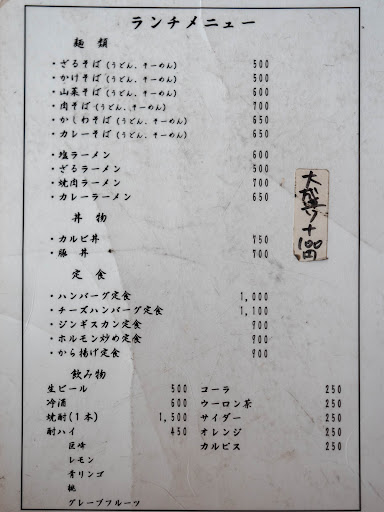 ランチメニュー
麺 類
・ざるそば(うどん、そーめん) 500
・かけそば(うどん、そーめん) 500
・山菜そば(うどん、そーめん) 600
・肉そば(うどん、そーめん) 700
・かしわそば(うどん、そーめん) 650
・カレーそば(うどん、そーめん) 650
・塩ラーメン 600
・ざるラーメン 500
・焼肉ラーメン 700
・カレーラーメン 650
大盛り+100円
丼 物
・カルビ丼 750
・豚 丼 700
定 食
・ハンバーグ定食 1,000
・チーズハンバーグ定食 1,100
・ジンギスカン定食 900
・ホルモン炒め定食 900
・から揚げ定食 900
飲み物
生ビール 500
冷酒 600
焼酎(1本) 1,500
酎ハイ 450
巨峰
レモン
青リンゴ
桃
グレープフルーツ
コーラ 250
ウーロン茶 250
サイダー 250
オレンジ 250
カルピス 250